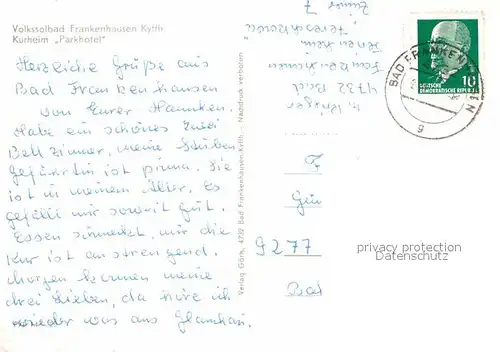 Volkssolbad Frankenhausen Kyffh.
Kurheim „Parkhotel“
Herzliche Grüße aus
Bad Frankenhausen
von Eurer
Habe ein schönes Zwei
Bettzimmer, meine Stuben
gefährtin ist prima. Sie
ist in meinem Alter. Es
gefällt mir soweit gut.
Essen schmeckt, nur die
Kur ist anstrengend.
Morgen kommen meine
drei Lieben, da höre ich
wieder was aus Glauchau.
Verlag Görn, 4732 Bad Frankenhausen-Kyffh. - Nachdruck verboten
4732 Bad
Frankenhausen
Zimmer 7
BAD FRANKENH
g
10
DEUTSCHE
DEMOKRATISCHE REPUBLIK
F
9277
Bad
privacy protection
Datenschutz